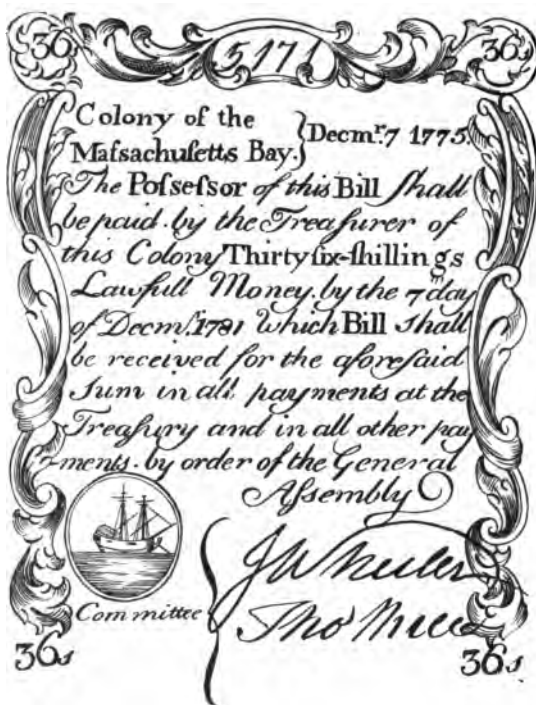 36s 5171 36s
Colony of the
Maſsachuſetts Bay. } Decmr. 7 1775.
The Poſseſsor of this Bill ſhall
be paid by the Treaſurer of
this Colony Thirty ſix-ſhillings
Lawfull Money. by the 7 day
of Decmr. 1781 Which Bill ſhall
be received for the aforeſaid
ſum in all payments at the
Treaſury and in all other pay
-ments. by order of the General
Aſsembly
Committee { J Wheeler
Tho
36s 36s